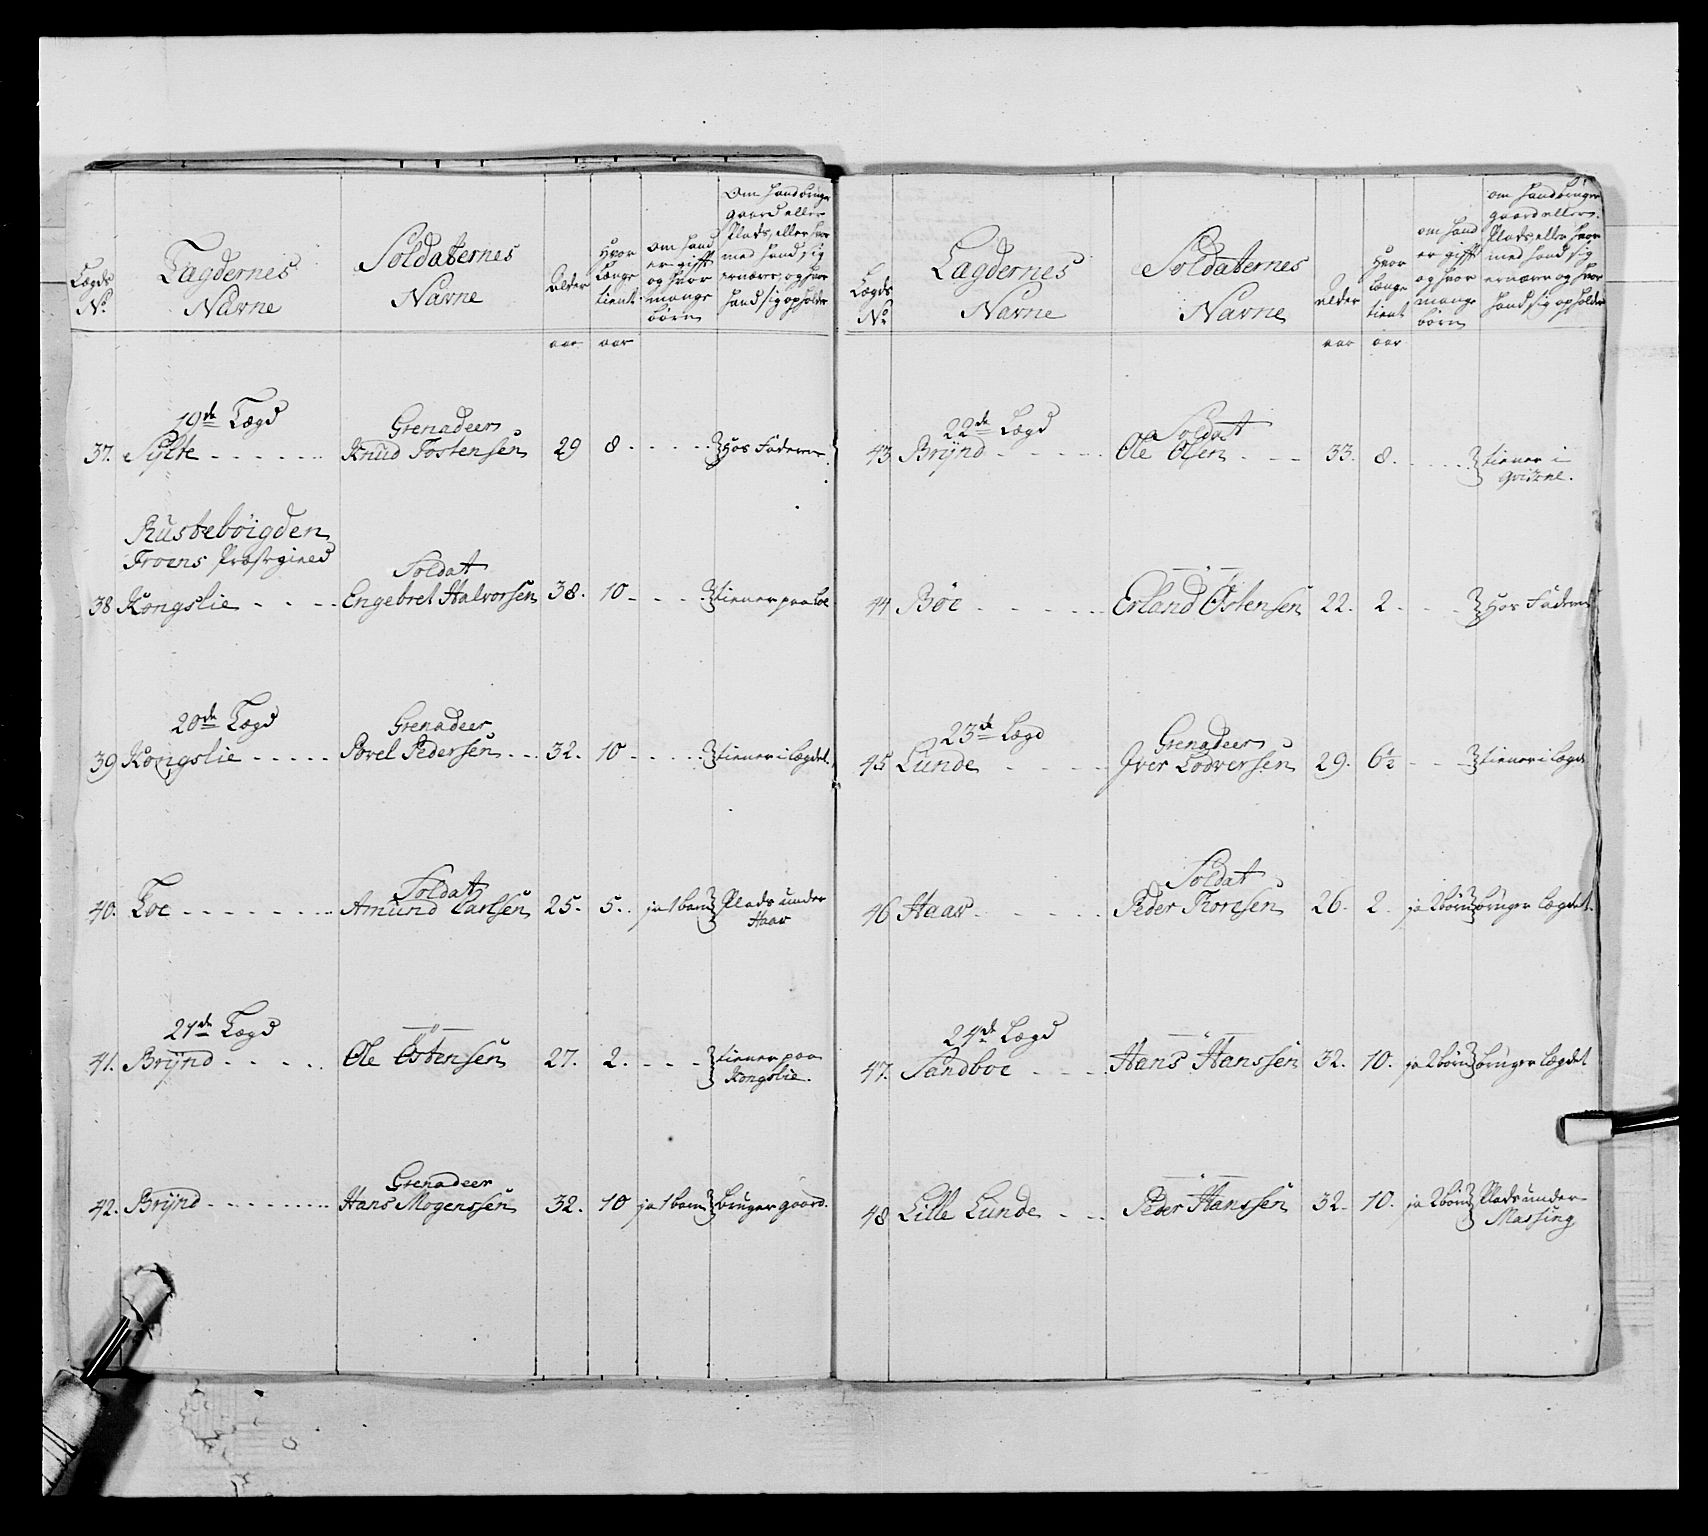 Lægds
No.
Lægdernes
Navne
Soldaternes
Navne
Alder
Hvor
længe
tient
om hand
er gifft
og hvor
mange
børn
Om hand bruger
gaard eller
Plads, eller hvor
med hand sig
ernærer, og hvor
hand sig opholder
aar aar
19de Lægd
Grenadeer
37. Sylte - - - - - - Knud Tostensen 29 8 - - - - - } Hos Faderen
Rustebøigden
Froens Præstegield
Soldat
38 Kongslie - - - - Engebret Halvorsen 38. 10 - - - - } tiener paa Loe
20de Lægd
Grenadeer
39 Kongslie - - - - - Povel Pedersen - - 32. 10 - - - - - } tiener i Lægdet
Soldat
40. Loe - - - - - - - Amund Carlsen 25. 5. ja 1 barn } Plads under
Haav
21de Lægd
— " —
41. Brÿnd - - - - - Ole Östensen 27. 2. - - - - } tiener paa
Kongslie.
Grenadeer
42. Brÿnd - - - - - - - - Hans Mogenssen 32. 10 ja 1 barn } bruger gaard.
Lægds
No
Lægdernes
Navne
Soldaternes
Navne
Alder
Hvor
længe
tient
om hand
er gifft
og hvor
mange
børn
om hand bruger
gaard eller
Plads, eller hvor
med hand sig
ernærer og hvor
hand sig opholder
aar aar
22de Lægd
Soldat
43 Brÿnd - - - - - Ole Olsen - - - 33. 8. - - - - - } tiener i
44 Bøe - - - - - - Erland Østensen 22. 2 - - - - } Hos Faderen
— " —
23de Lægd
Grenadeer
45 Lunde - - - - - Iver Lodversen 29. 6½ - - - } tiener i Lægdet
Soldat
46 Haav - - - - - - Peder Thoresen 26. 2. ja 2 børn } bruger Lægdet.
24de Lægd
— " —
47. Sandboe - - - - Hans Hanssen 32. 10. ja 2 børn } bruger Lægdet
— " —
48 Lille Lunde - - - Peder Hanssen 32. 10. ja 2 børn } Plads under
Massing